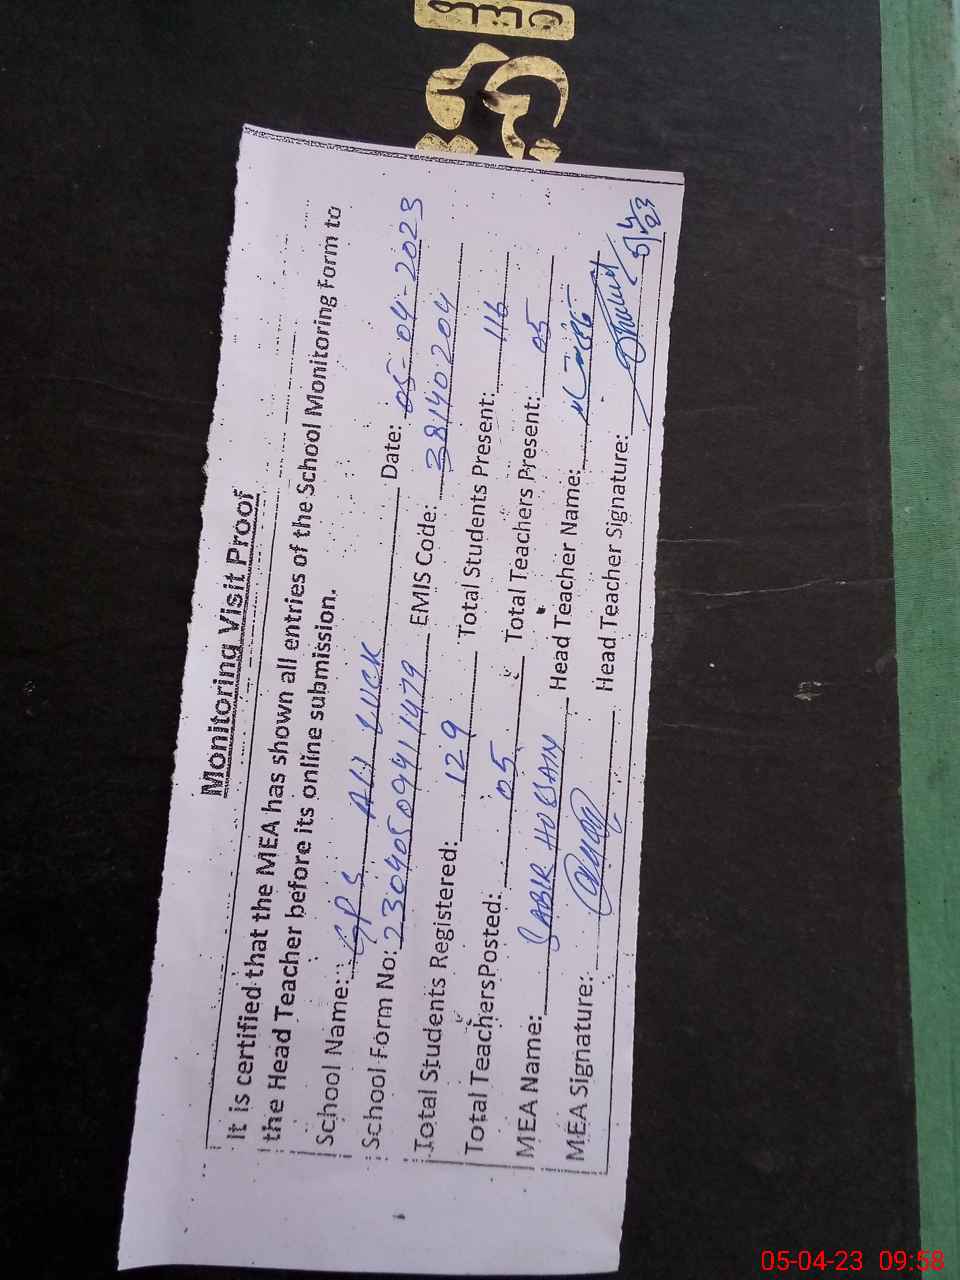 Monitoring Visit Proof
It is certified that the MEA has shown all entries of the School Monitoring Form to
the Head Teacher before its online submission.
School Name: GPS ALI LUCK Date: 05-04-2023
School Form No: 23040509411479 EMIS Code: 38140204
Total Students Registered: 129 Total Students Present: 116
Total TeachersPosted: 05 Total Teachers Present: 05
MEA Name: SABIR HUSSAIN Head Teacher Name:
MEA Signature: Head Teacher Signature:
5/4/23
05-04-23 09:58